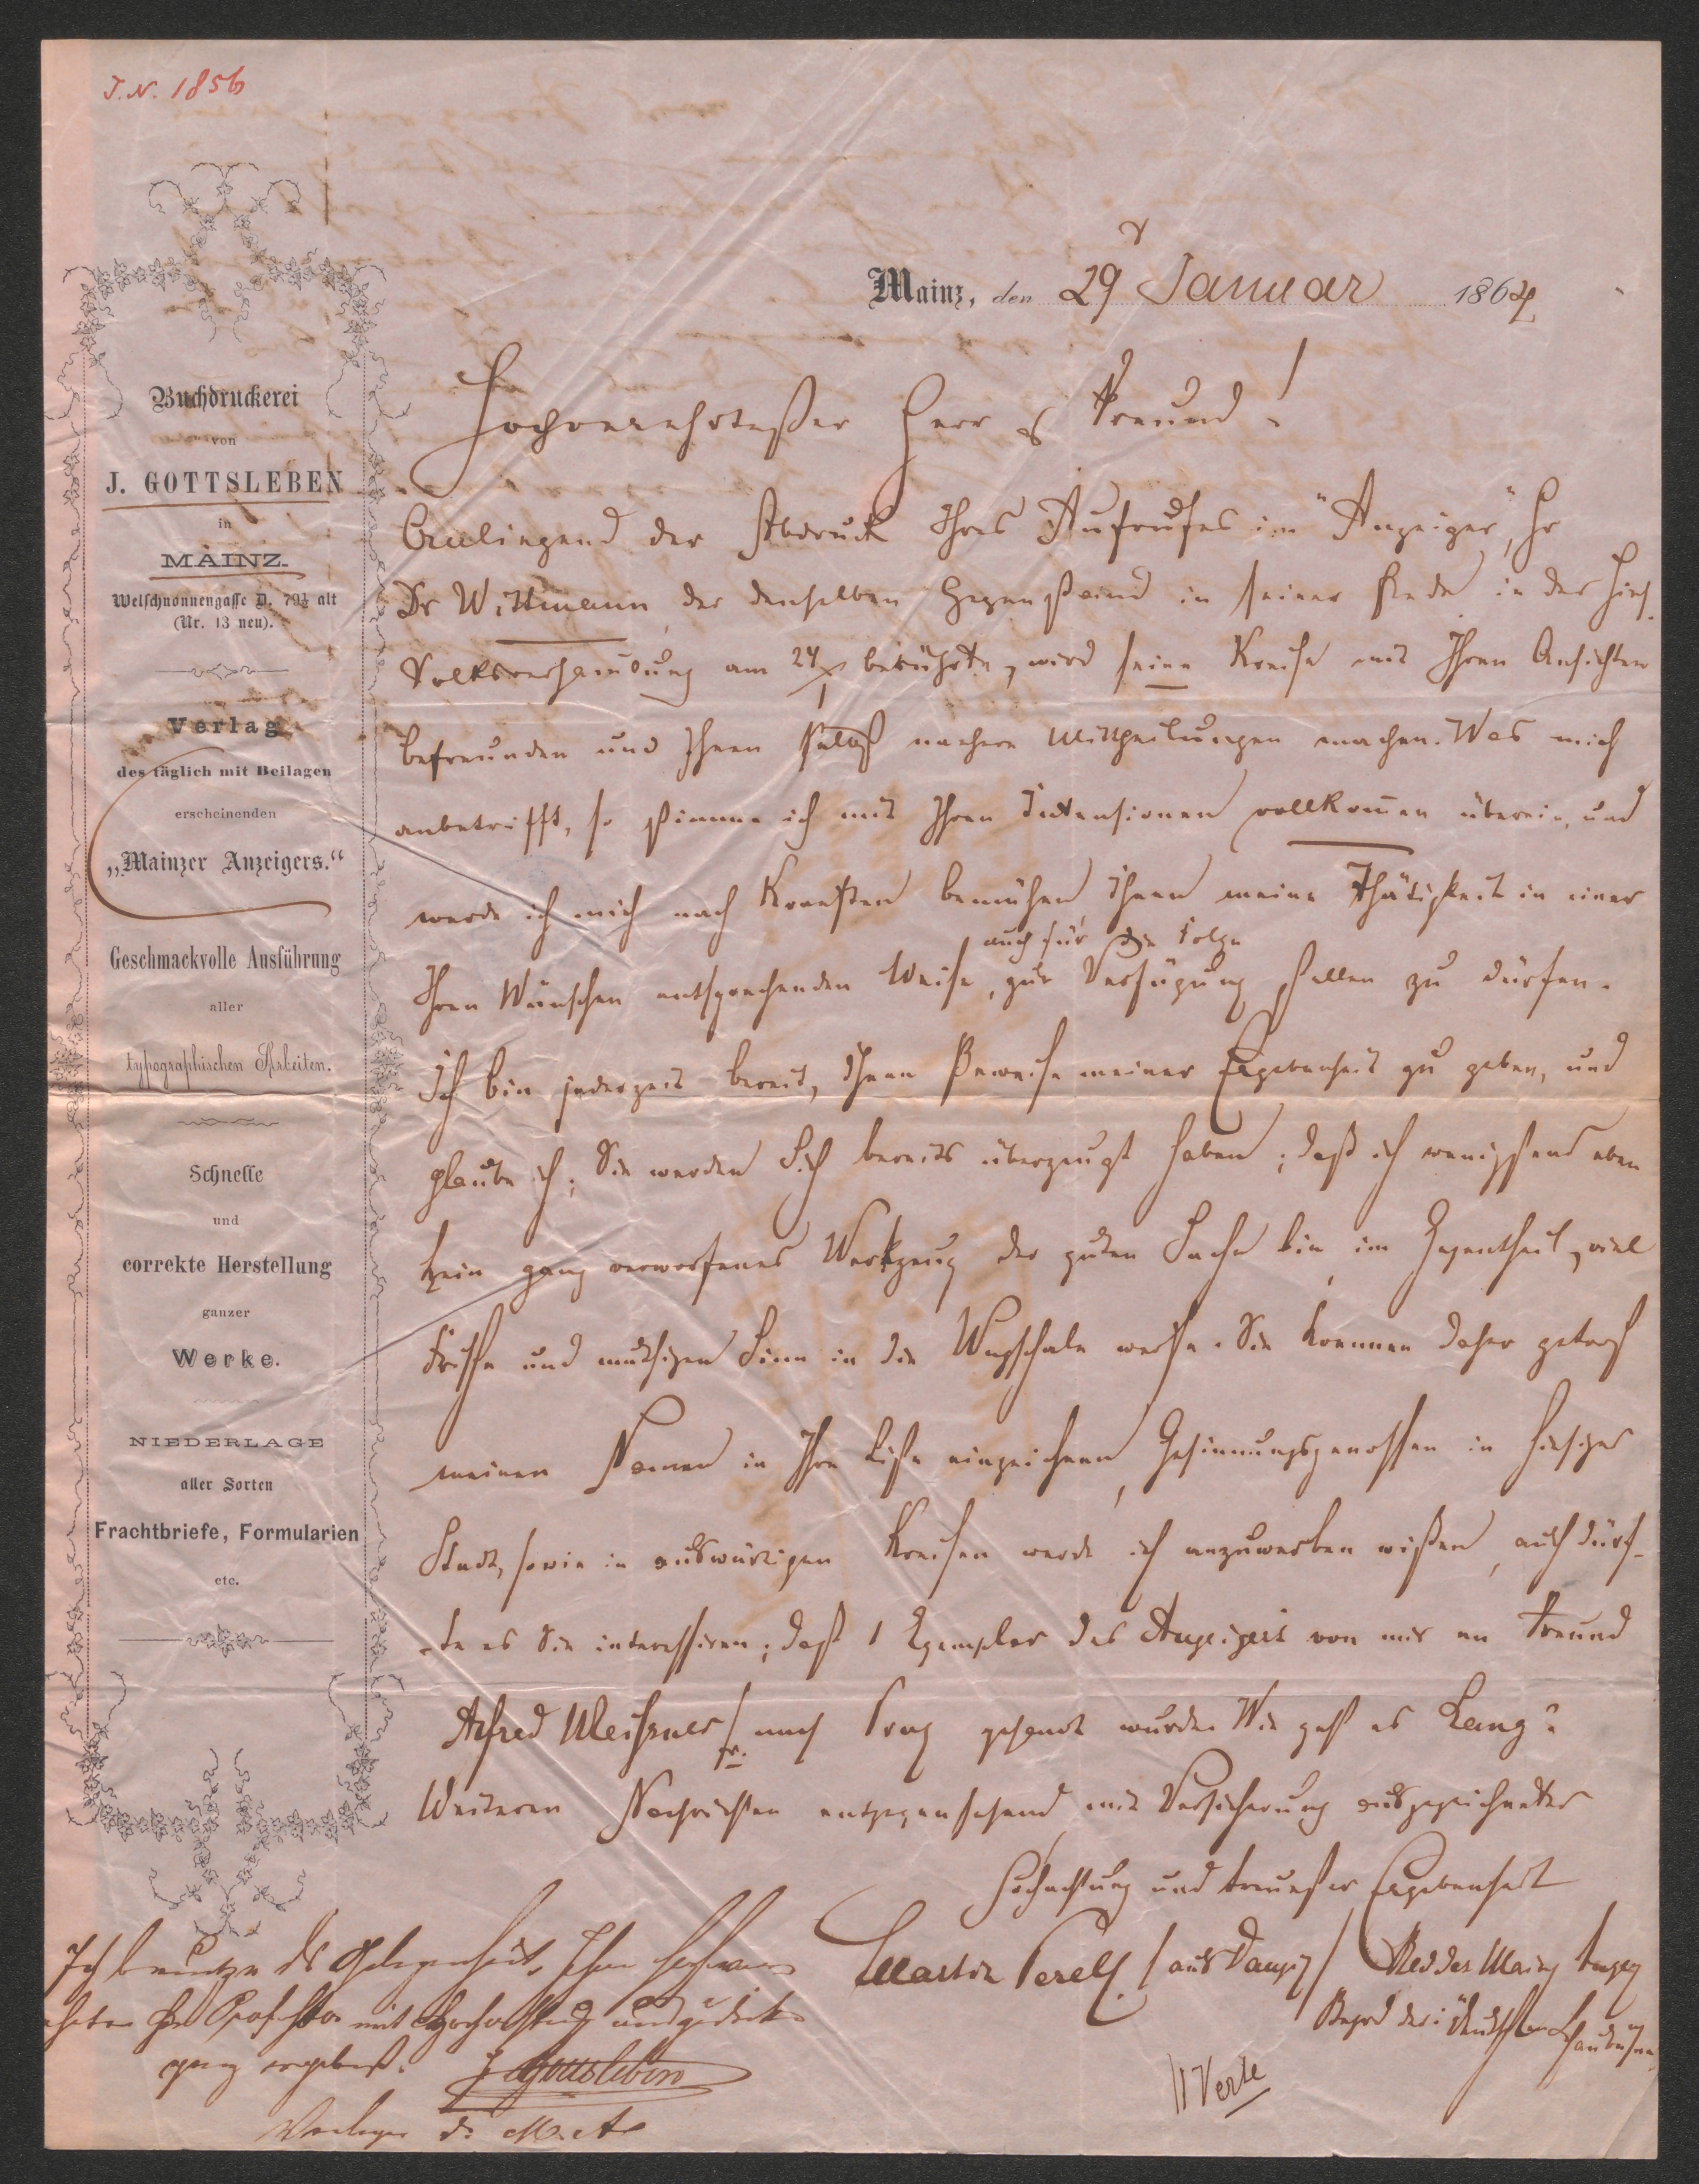 J. N. 1856
Mainz, den 29 Januar 1864
Buchdruckerei
von
J. GOTTSLEBEN
in
MAINZ.
Welschnonnengasse D. 79½ alt
(Nr. 13 neu).
Verlag
des täglich mit Beilagen
erscheinenden
„Mainzer Anzeigers.“
Geschmackvolle Ausführung
aller
typographischen Arbeiten.
Schnelle
und
correkte Herstellung
ganzer
Werke.
NIEDERLAGE
aller Sorten
Frachtbriefe, Formularien
etc.
Hochverehrtester Herr & Freund!
Anliegend der Abdruck Ihres Aufrufes im "Anzeiger", Hr
Dr Wittmann, der denselben Gegenstand in seiner Rede in der hies.
Volksversammlung am 24 berührte, wird seine Kreise mit Ihren Ansichten
befreunden und Ihnen selbst naehere Mittheilungen machen. Was mich
anbetrifft, so stimme ich mit Ihren Intensionen vollkommen überein, und
werde ich mich nach Kraeften bemühen Ihnen meine Thätigkeit in einer
auch für die Folge
Ihren Wünschen entsprechenden Weise, zur Verfügung stellen zu dürfen.
Ich bin jederzeit bereit, Ihnen Beweise meiner Ergebenheit zu geben, und
glaube ich, Sie werden Sich bereits überzeugt haben, daß ich wenigstens eben
kein ganz verworfenes Werkzeug der guten Sache bin, im Gegentheil, viel
Frische und muthigen Sinn in die Wagschale werfe. Sie koennen daher getrost
meinen Namen in Ihre Liste einzeichnen, Gesinnungsgenossen in hiesiger
Stadt, sowie in auswärtigen Kreisen werde ich anzuwerben wißen, auch dürf-
-te es Sie interessiren, daß 1 Exemplar des Anzeigers von mir an Freund
Alfred Meißner nach Prag gesandt wurde. Wie geht es Lang?
Weiteren Nachrichten entgegensehend mit Versicherung ausgezeichneter
Hochachtung und treuester Ergebenheit
Martin Perels. /aus Danzig/ Red des Mainz Anzeig
der: Deutschen Schaubühne
Ich benutze die Gelegenheit, Ihnen hochver-
ehrter Hr Professor mit Hochachtung
ganz ergebenst. J Gottsleben
Verleger d. M. A.
Verte